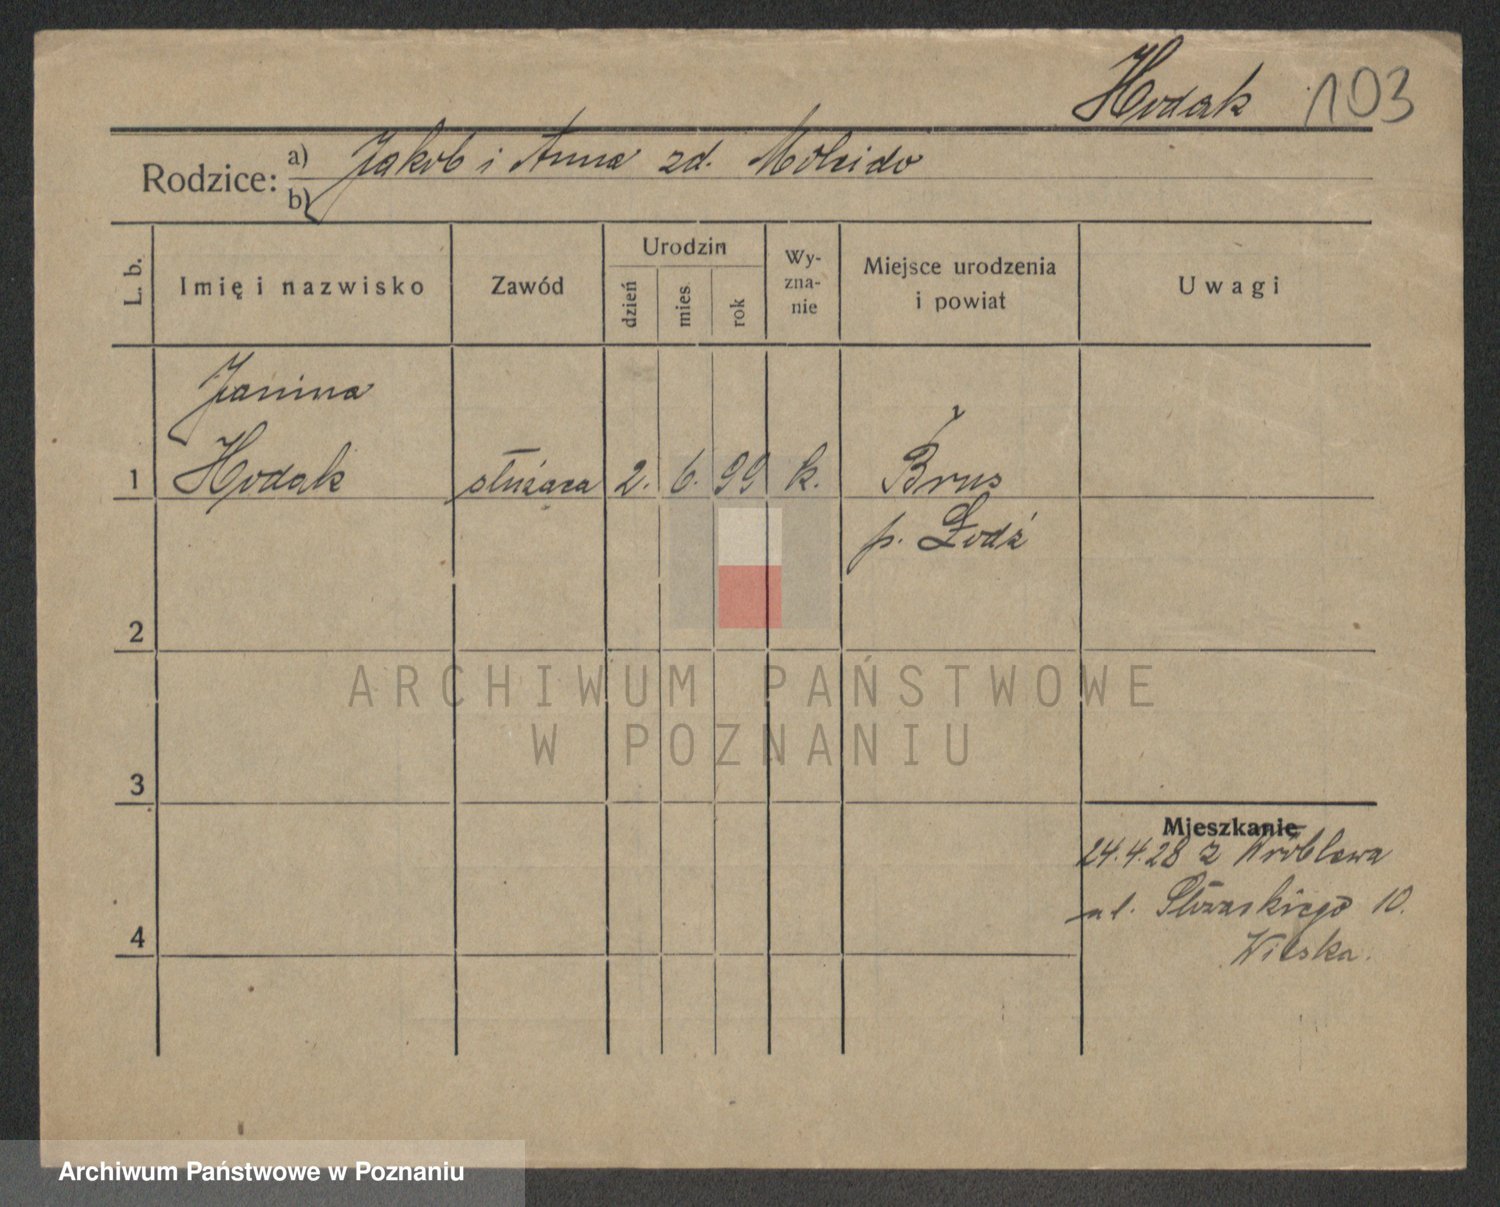 Hodak 103
Rodzice: a) Jakob i Anna zd.
b)
L. b.
Imię i nazwisko
Zawód
Urodzin
dzień
mies.
rok
Wy-
zna-
nie
Miejsce urodzenia
i powiat
Uwagi
Janina
1 Hodak służąca 2. 6. 99 k. Brus
p. Łódź
2
3
4
Mieszkanie
24.4.28 z Wróblewa
ul. 10.
ARCHIWUM PAŃSTWOWE
W POZNANIU
Archiwum Państwowe w Poznaniu